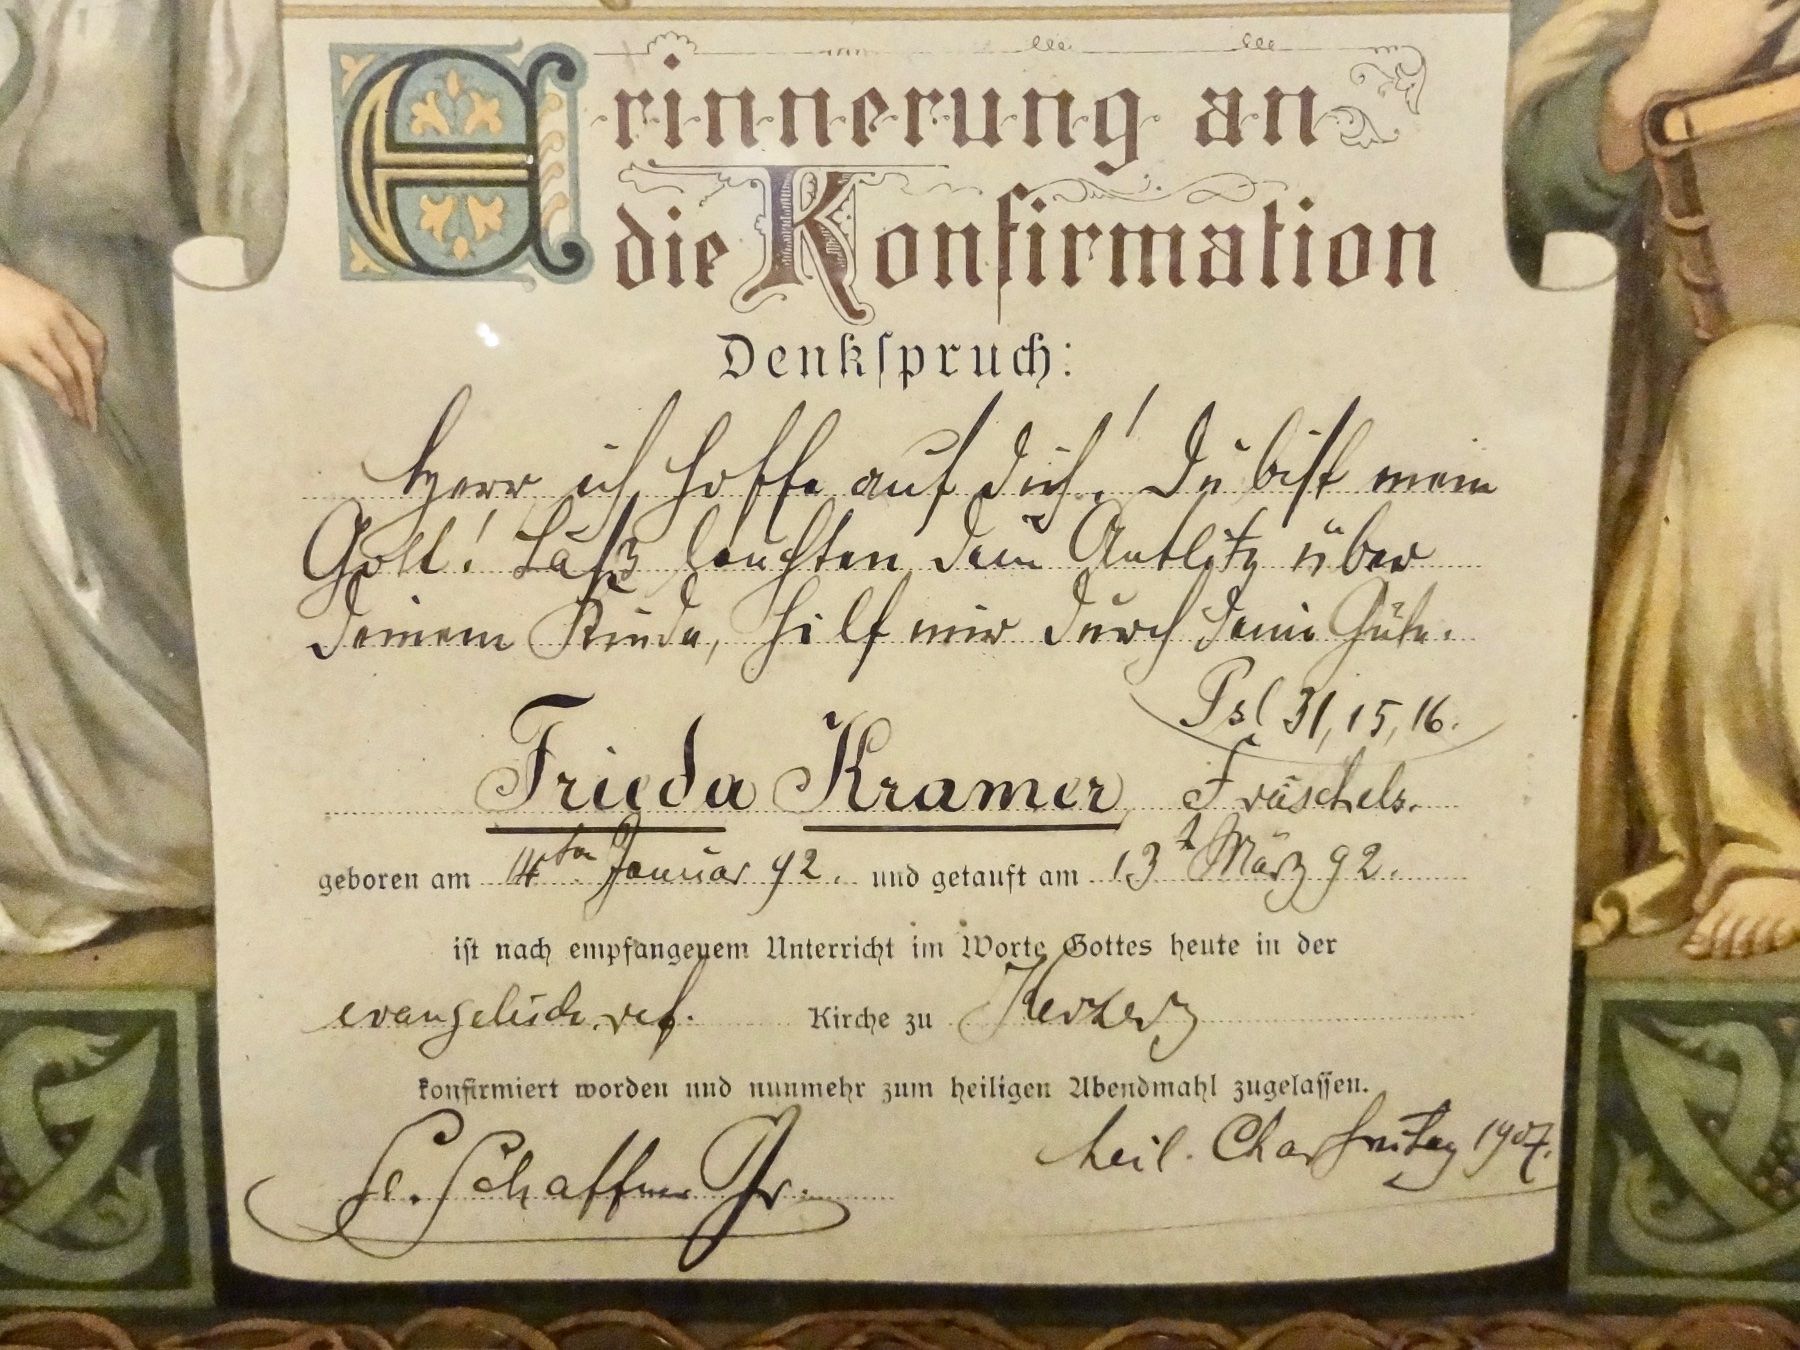 Erinnerung an
die Konfirmation
Denkspruch:
Herr ich hoffe auf dich! Du bist mein
Gott! Laß leuchten dein Antlitz über
deinem Kinde, hilf mir durch deine Güte.
Psl 31, 15, 16.
Frieda Kramer, Fräschels.
geboren am 14ten Januar 92. und getauft am 13t März 92.
ist nach empfangenem Unterricht im Worte Gottes heute in der
evangelisch. ref. Kirche zu Kerzerz
konfirmiert worden und nunmehr zum heiligen Abendmahl zugelassen.
heil. Charfreitag 1907.
Schaffner Pfr.